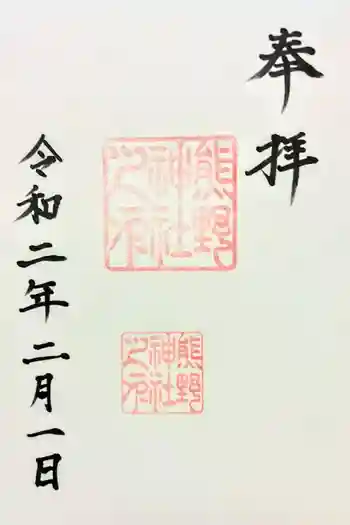 奉拝
熊野
神社
之印
熊野
神社
之印
令和二年二月一日